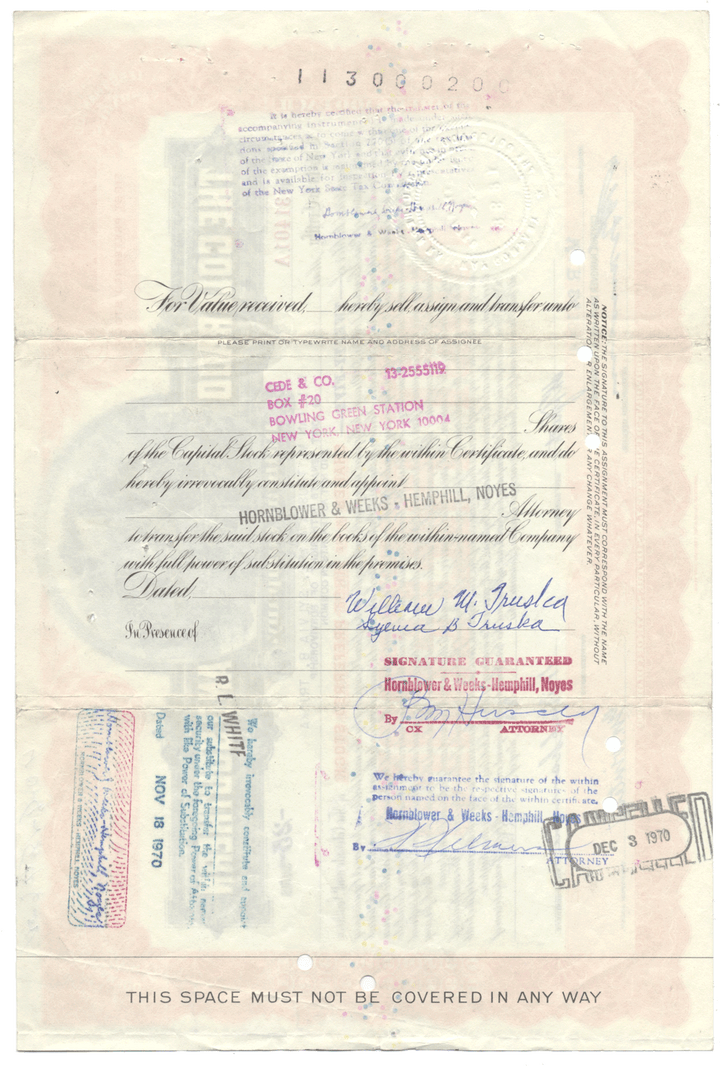 113000200
It is hereby certified that the
accompanying instrument
of the State of New York
and is available for
of the New York State Tax
Hornblower & Weeks-Hemphill
For Value received, hereby sell, assign and transfer unto
PLEASE PRINT OR TYPEWRITE NAME AND ADDRESS OF ASSIGNEE
CEDE & CO. 13-2555119
BOX #20
BOWLING GREEN STATION
NEW YORK, NEW YORK 10004
Shares
of the Capital Stock represented by the within Certificate, and do
hereby irrevocably constitute and appoint
HORNBLOWER & WEEKS - HEMPHILL, NOYES
Attorney
to transfer the said stock on the books of the within-named Company
with full power of substitution in the premises.
Dated,
William M. Truska
B Truska
In Presence of
SIGNATURE GUARANTEED
Hornblower & Weeks-Hemphill, Noyes
By
CX ATTORNEY
We hereby guarantee the signature of the within
assignment to be the respective signature of the
person named on the face of the within certificate.
Hornblower & Weeks - Hemphill, Noyes
By
ATTORNEY
CANCELLED
DEC 3 1970
NOTICE: THE SIGNATURE TO THIS ASSIGNMENT MUST CORRESPOND WITH THE NAME
AS WRITTEN UPON THE FACE OF THE CERTIFICATE, IN EVERY PARTICULAR, WITHOUT
ALTERATION OR ENLARGEMENT, OR ANY CHANGE WHATEVER.
We hereby irrevocably constitute and appoint
R. L. WHITE
our substitute to transfer the within
security under the foregoing Power of Attorney
with like Power of Substitution.
Dated NOV 18 1970
Hornblower & Weeks-Hemphill Noyes
HORNBLOWER & WEEKS-HEMPHILL, NOYES
THIS SPACE MUST NOT BE COVERED IN ANY WAY